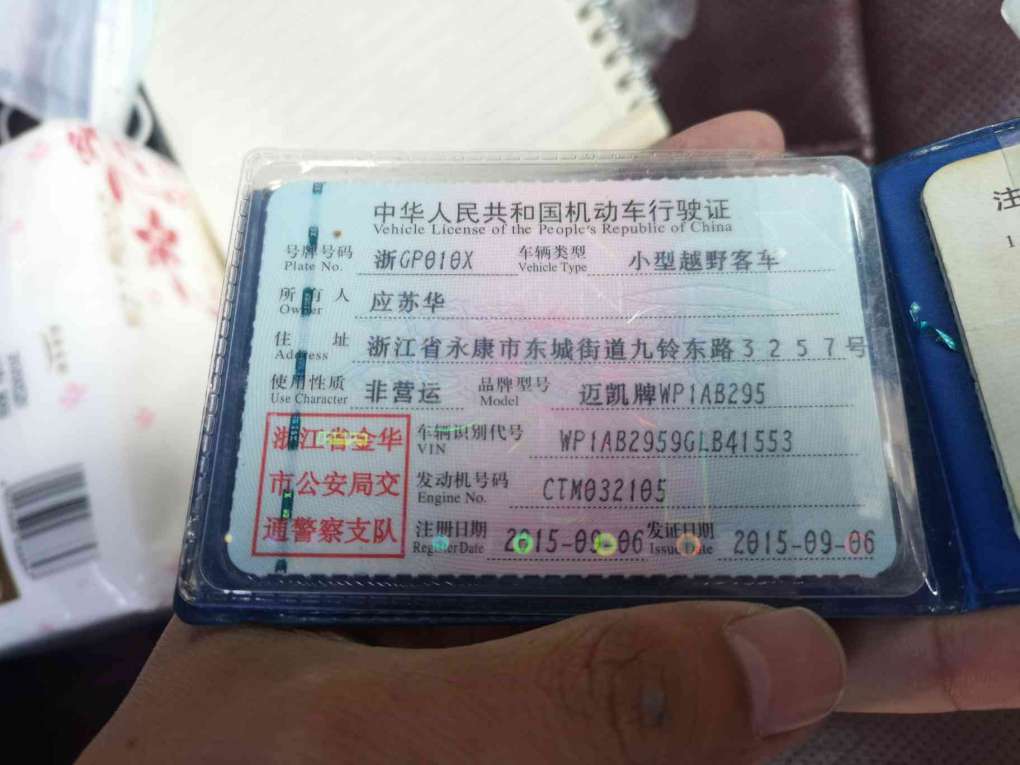 中华人民共和国机动车行驶证
Vehicle License of the People's Republic of China
号牌号码 浙GP010X 车辆类型 小型越野客车
Plate No. Vehicle Type
所有人 应苏华
Owner
住址 浙江省永康市东城街道九铃东路3257号
Address
使用性质 非营运 品牌型号 迈凯牌WP1AB295
Use Character Model
浙江省金华 车辆识别代号 WP1AB2959GLB41553
VIN
市公安局交 发动机号码 CTM032105
Engine No.
通警察支队 注册日期 2015-09-06 发证日期 2015-09-06
Register Date Issue Date
注
1